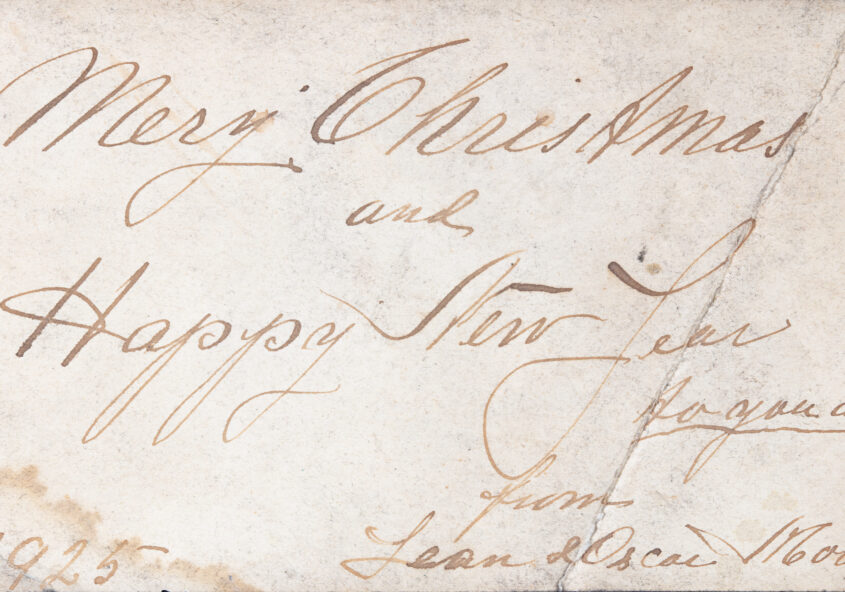 Mery Christmas
and
Happy New Year
to you
from
Lean & Oscar
1925